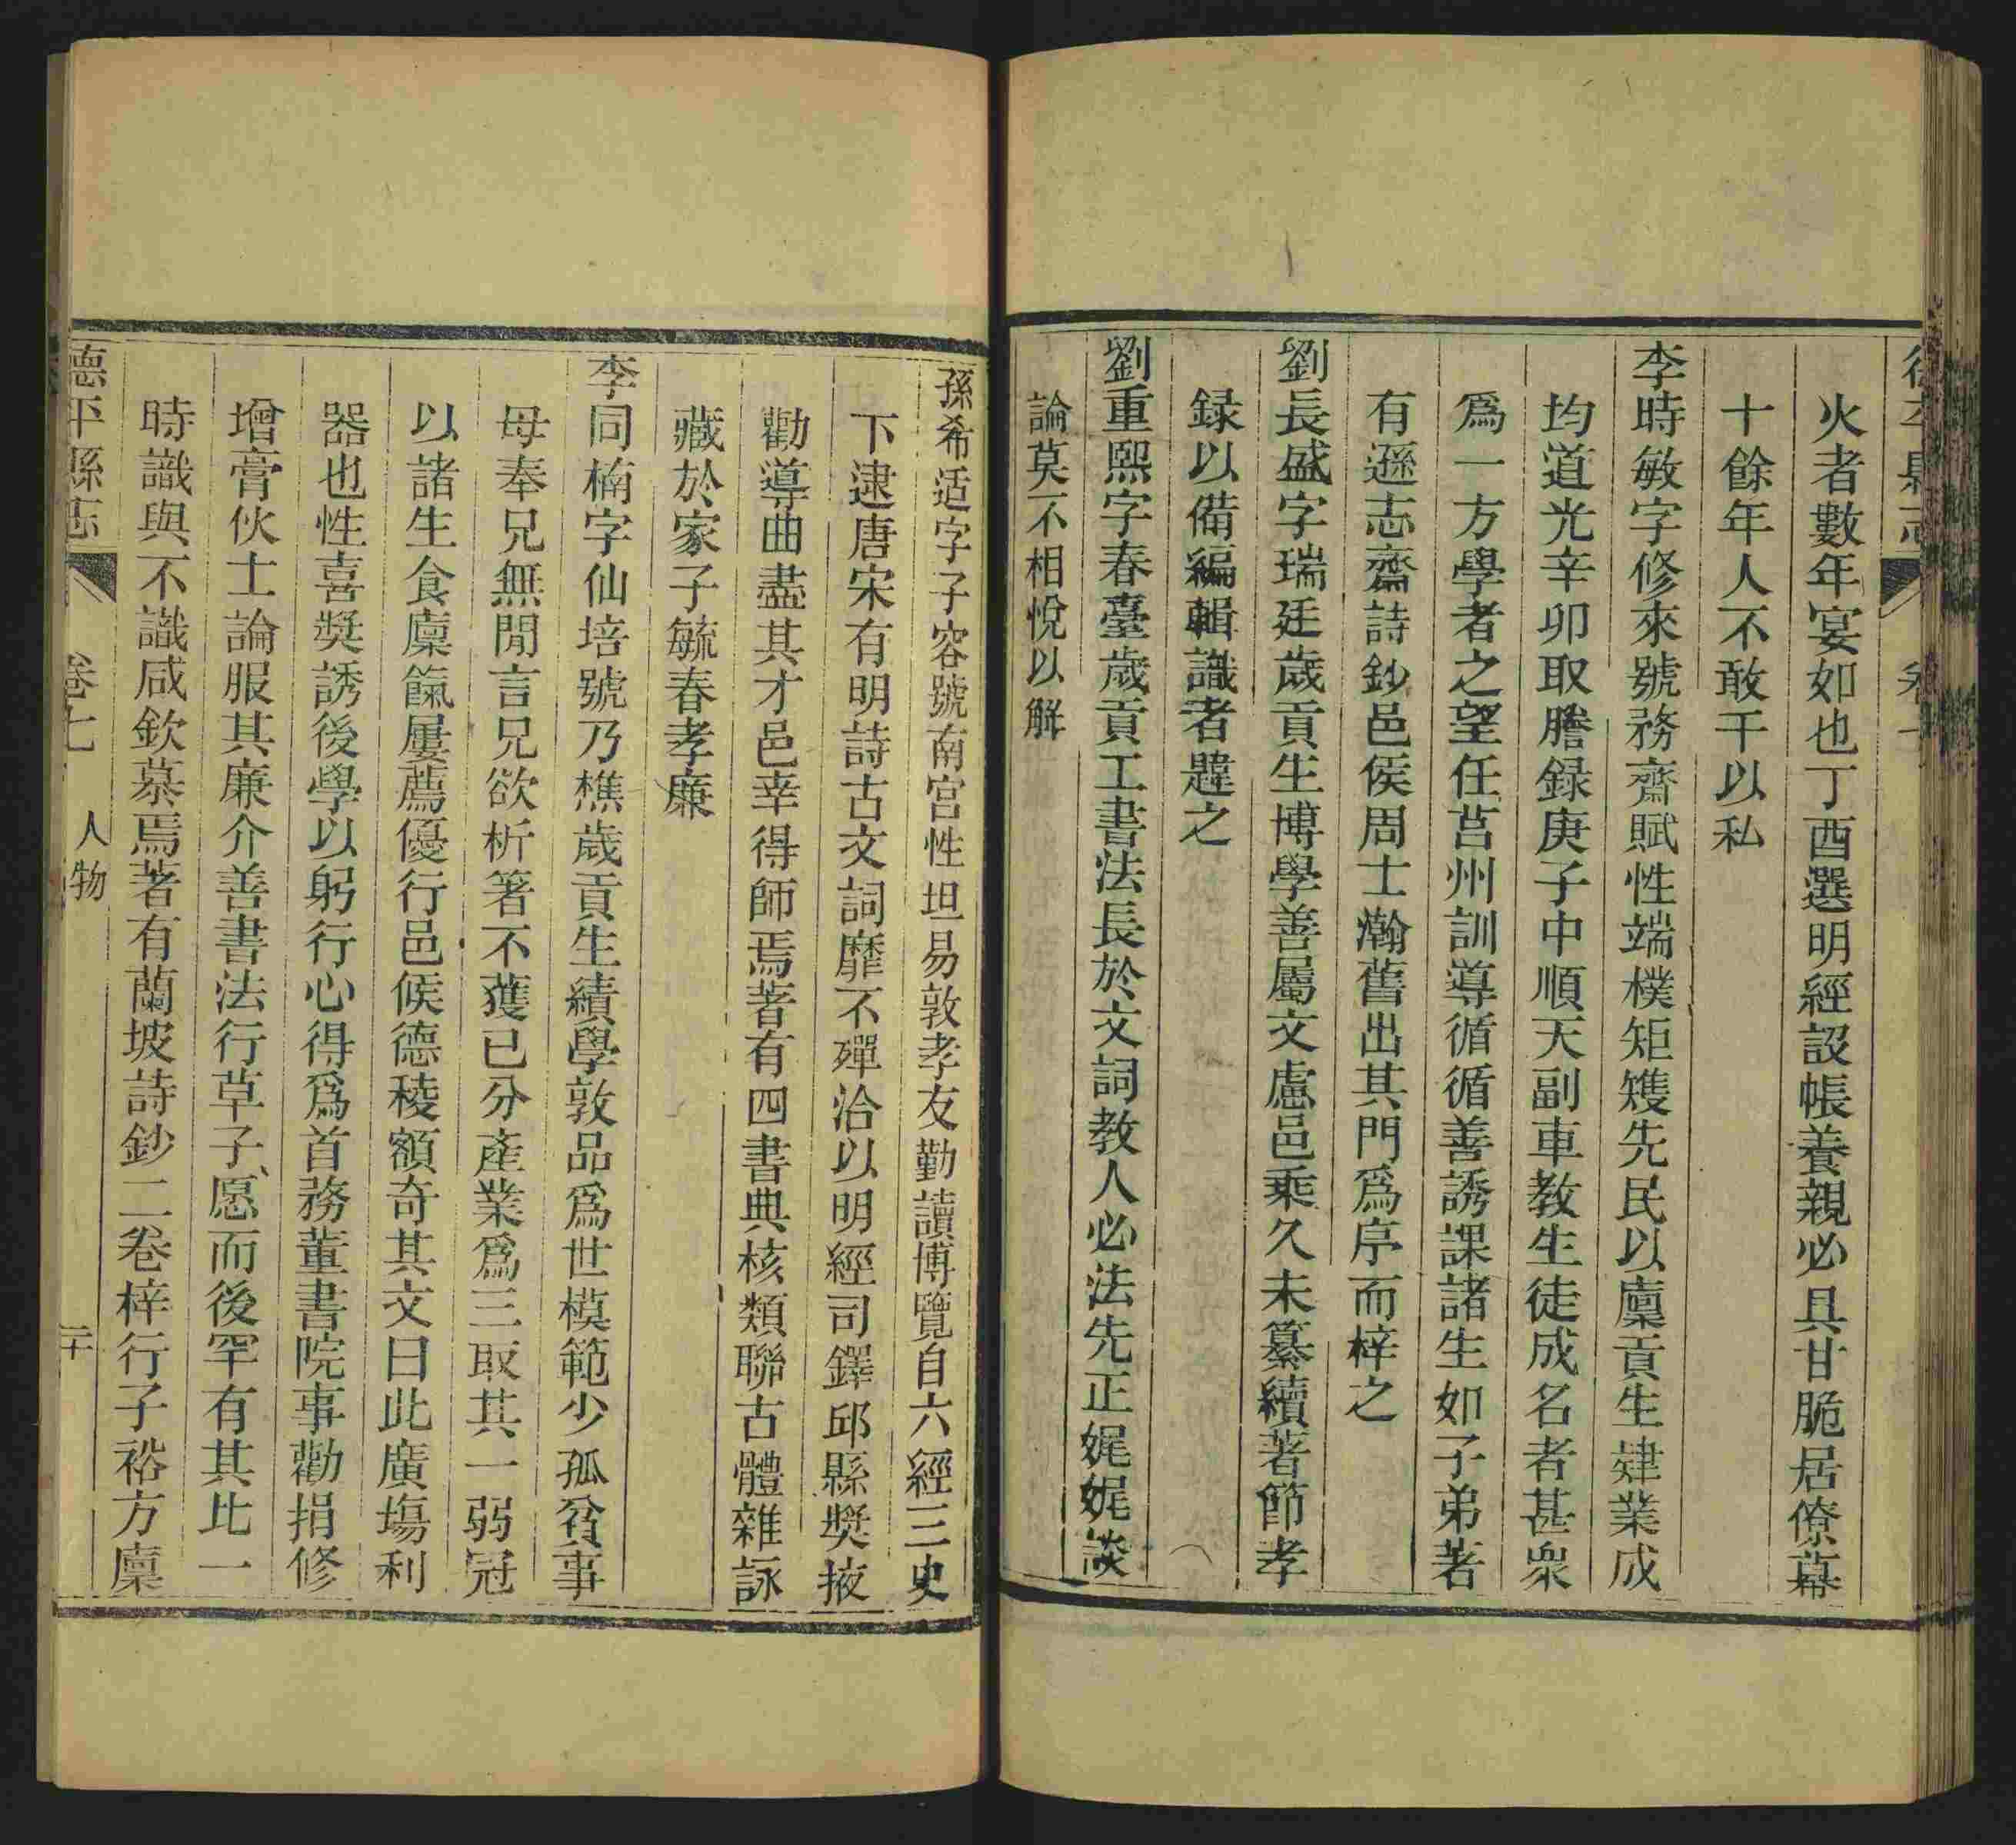 火者數年宴如也丁酉選明經設帳養親必具甘脆居僚幕
十餘年人不敢干以私
李時敏字修來號務齋賦性端樸矩矱先民以廩貢生肄業成
均道光辛卯取謄録庚子中順天副車教生徒成名者甚衆
爲一方學者之望任莒州訓導循循善誘課諸生如子弟著
有遜志齋詩鈔邑侯周士瀚舊出其門爲序而梓之
劉長盛字瑞廷歲貢生博學善屬文慮邑乘久未纂續著節孝
録以備編輯識者韙之
劉重熙字春臺歲貢工書法長於文詞教人必法先正娓娓談
論莫不相悅以解
孫希适字子容號南宮性坦易敦孝友勤讀博覽自六經三史
下逮唐宋有明詩古文詞靡不殫洽以明經司鐸邱縣獎掖
勸導曲盡其才邑幸得師焉著有四書典核類聯古體雜詠
藏於家子毓春孝廉
李同楠字仙培號乃樵歲貢生績學敦品爲世模範少孤貧事
母奉兄無閒言兄欲析箸不獲已分產業爲三取其一弱冠
以諸生食廩餼屢薦優行邑侯德稜額奇其文曰此廣塲利
器也性喜獎誘後學以躬行心得爲首務董書院事勸捐修
增膏伙士論服其廉介善書法行草子愿而後罕有其比一
時識與不識咸欽慕焉著有蘭坡詩鈔二卷梓行子裕方廩
德平縣志 卷七 人物 二十